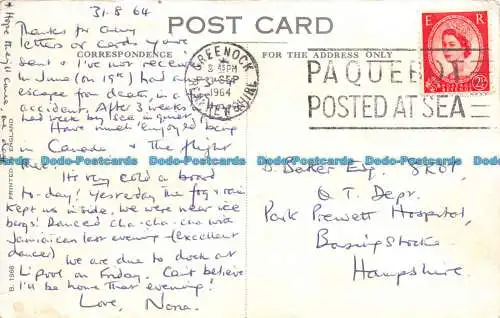 31.8.64
POST CARD
CORRESPONDENCE
FOR THE ADDRESS ONLY
Thanks for any
letters or cards you've
sent & I've not received
in June (on 19th) had an
escape from death, in a
accident. After 3 weeks in
had week by sea in
Have much enjoyed being
in Canada & the flight
It's very cold a board
to-day! Yesterday the fog & rain
kept us inside. We were near ice
bergs! Danced cha-cha-cha with
Jamaican last evening (excellent
dancer)
We are due to dock at
L'pool on Friday. Can't believe
I'll be home that evening!
Love, Nona.
* Hope they'll
PRINTED IN ENGLAND
B. 1968
GREENOCK
SEP
1964
RENFREWSHIRE
PAQUEBOT
POSTED AT SEA
E R
POSTAGE
REVENUE
2½D
D. Baker Esq. SROT
O T Depr.
Park Prewett Hospital,
Basingstoke
Hampshire.
Dodo-Postcards Dodo-Postcards Dodo-Postcards Dodo-Postcards Dodo-Postcards